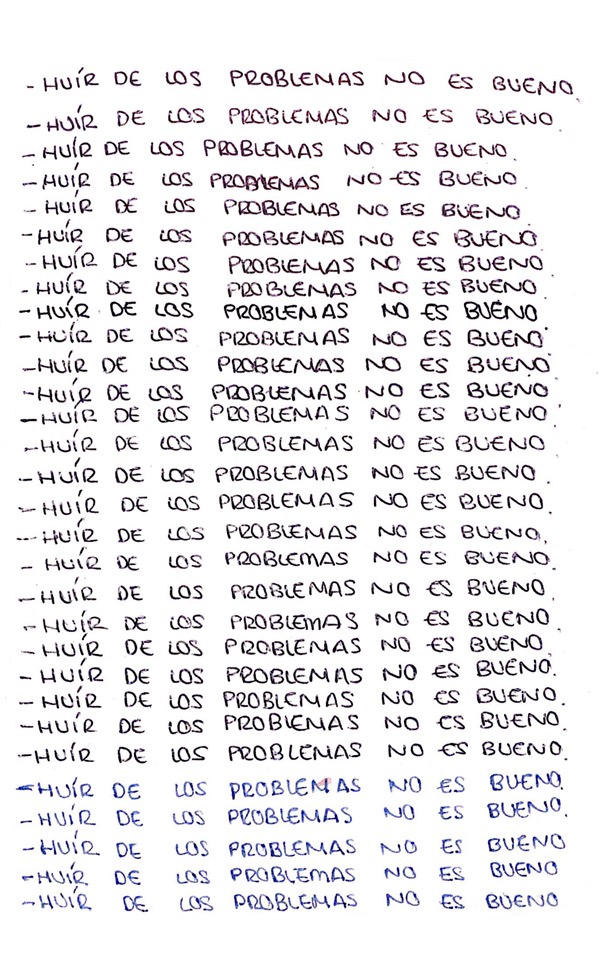 - HUÍR DE LOS PROBLEMAS NO ES BUENO.
- HUÍR DE LOS PROBLEMAS NO ES BUENO.
- HUÍR DE LOS PROBLEMAS NO ES BUENO.
- HUÍR DE LOS PROBLEMAS NO ES BUENO.
- HUÍR DE LOS PROBLEMAS NO ES BUENO.
- HUÍR DE LOS PROBLEMAS NO ES BUENO.
- HUÍR DE LOS PROBLEMAS NO ES BUENO.
- HUÍR DE LOS PROBLEMAS NO ES BUENO.
- HUÍR DE LOS PROBLEMAS NO ES BUENO.
- HUÍR DE LOS PROBLEMAS NO ES BUENO.
- HUÍR DE LOS PROBLEMAS NO ES BUENO.
- HUÍR DE LOS PROBLEMAS NO ES BUENO.
- HUÍR DE LOS PROBLEMAS NO ES BUENO.
- HUÍR DE LOS PROBLEMAS NO ES BUENO.
- HUÍR DE LOS PROBLEMAS NO ES BUENO.
- HUÍR DE LOS PROBLEMAS NO ES BUENO.
- HUÍR DE LOS PROBLEMAS NO ES BUENO.
- HUÍR DE LOS PROBLEMAS NO ES BUENO.
- HUÍR DE LOS PROBLEMAS NO ES BUENO.
- HUÍR DE LOS PROBLEMAS NO ES BUENO.
- HUÍR DE LOS PROBLEMAS NO ES BUENO.
- HUÍR DE LOS PROBLEMAS NO ES BUENO.
- HUÍR DE LOS PROBLEMAS NO ES BUENO.
- HUÍR DE LOS PROBLEMAS NO ES BUENO.
- HUÍR DE LOS PROBLEMAS NO ES BUENO.
- HUÍR DE LOS PROBLEMAS NO ES BUENO.
- HUÍR DE LOS PROBLEMAS NO ES BUENO.
- HUÍR DE LOS PROBLEMAS NO ES BUENO
- HUÍR DE LOS PROBLEMAS NO ES BUENO
- HUÍR DE LOS PROBLEMAS NO ES BUENO